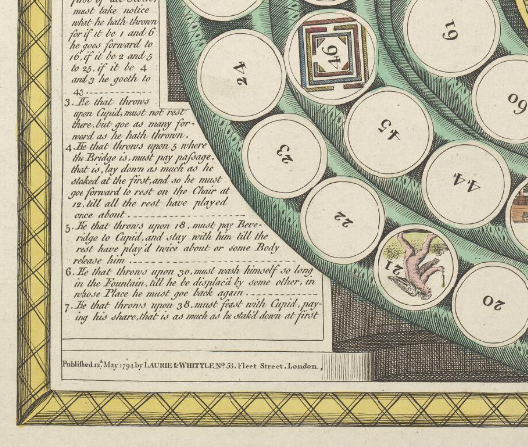 must take notice
what he hath thrown
for if it be 1 and 6
he goes forward to
16, if it be 2 and 5
to 25, if it be 4
and 3 he goeth to
43
3. He that throws
upon Cupid, must not rest
there, but goe as many for-
ward as he hath thrown.
4. He that throws upon 5 where
the Bridge is, must pay passage,
that is, lay down as much as he
staked at the first, and so he must
goe forward to rest on the Chair at
12, till all the rest have played
once about
5. He that throws upon 18. must pay Beve-
ridge to Cupid, and stay with him till the
rest have play'd twice about or some Body
release him
6. He that throws upon 30. must wash himself so long
in the Fountain, till he be displac'd by some other, in
whose Place he must goe back again
7. He that throws upon 38. must feast with Cupid, pay-
ing his share, that is as much as he stak'd down at first
Published 12th May 1794 by LAURIE & WHITTLE, No 53, Fleet Street, London.
24
46
61
60
45
23
44
22
21
20